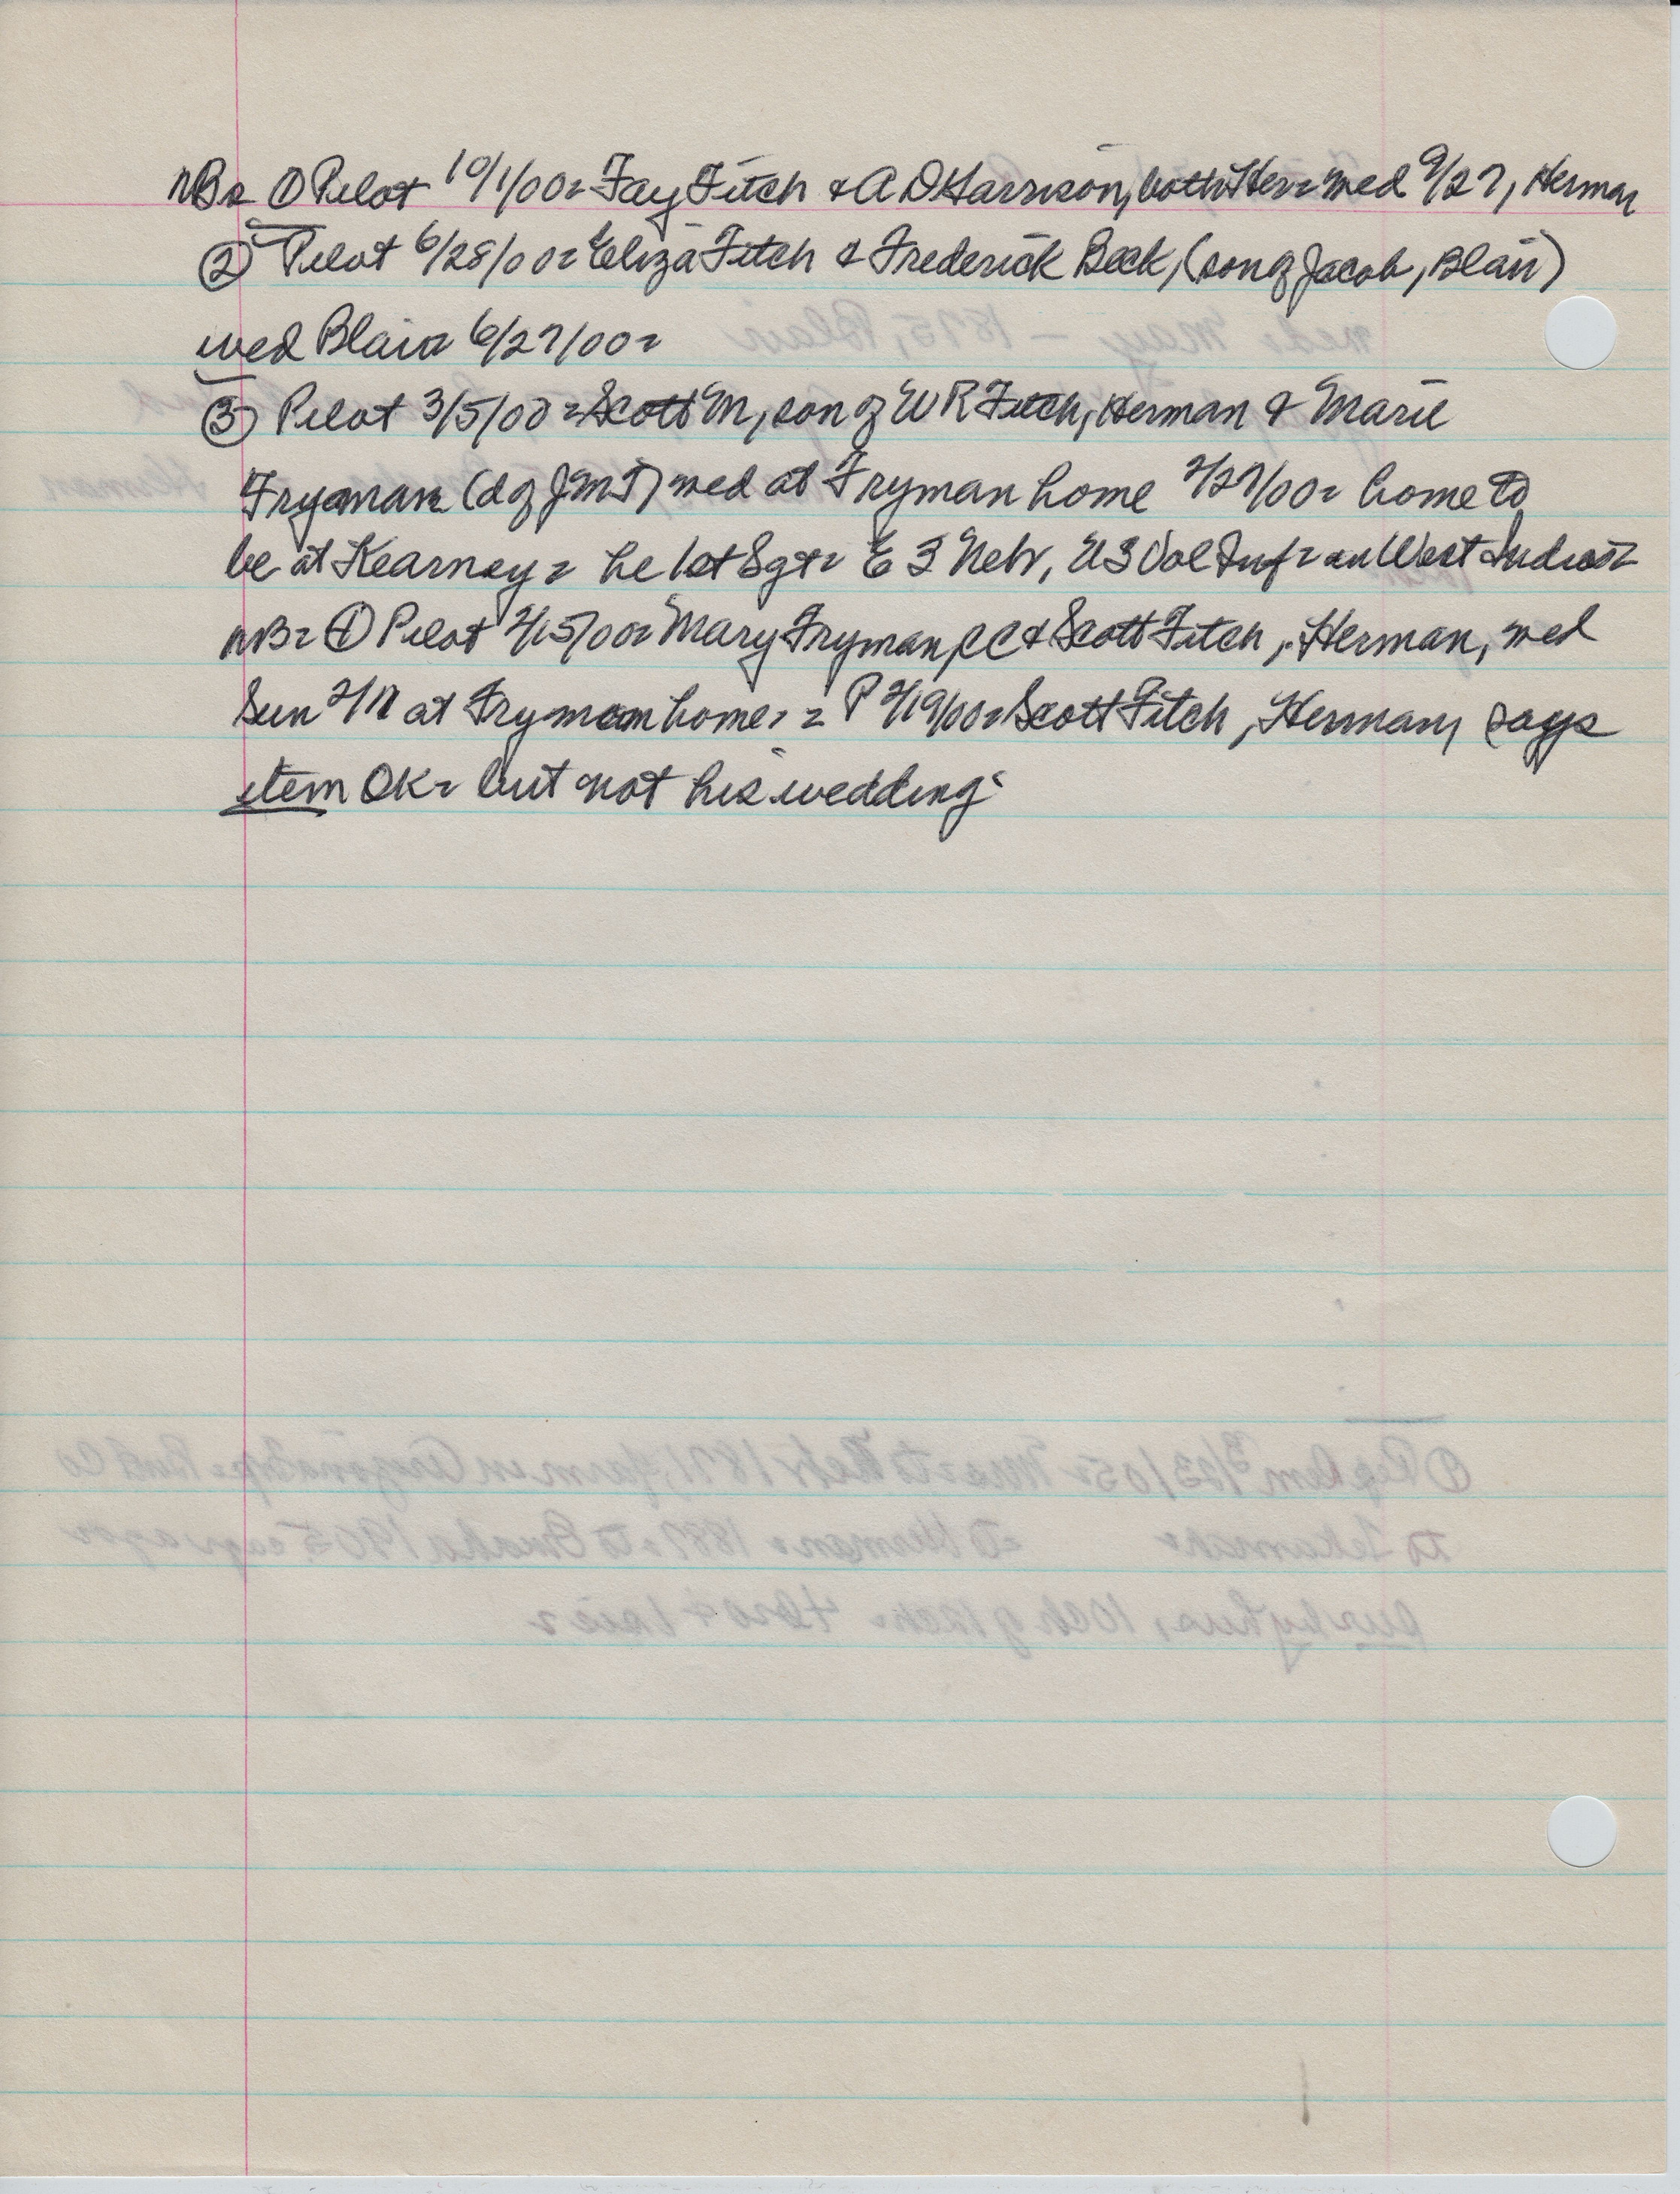 NB= ① Pilot 10/1/00= Fay Fitch & A D Harrison, both Her= wed 9/27, Herman
② Pilot 6/28/00= Eliza Fitch & Frederick Beck, (son of Jacob, Blair)
wed Blair 6/27/00=
③ Pilot 3/5/00= Scott M, son of W R Fitch, Herman & Marie
Fryman (d of J M F) wed at Fryman home 2/27/00= home to
be at Kearney= he 1st Sgt= E 3 Neb, US Vol Inf= in West Indies=
NB= ① Pilot 2/15/00= Mary Fryman, & Scott Fitch, Herman, wed
Sun 2/11 at Fryman home= P 2/19/00= Scott Fitch, Herman, says
item OK= but not his wedding